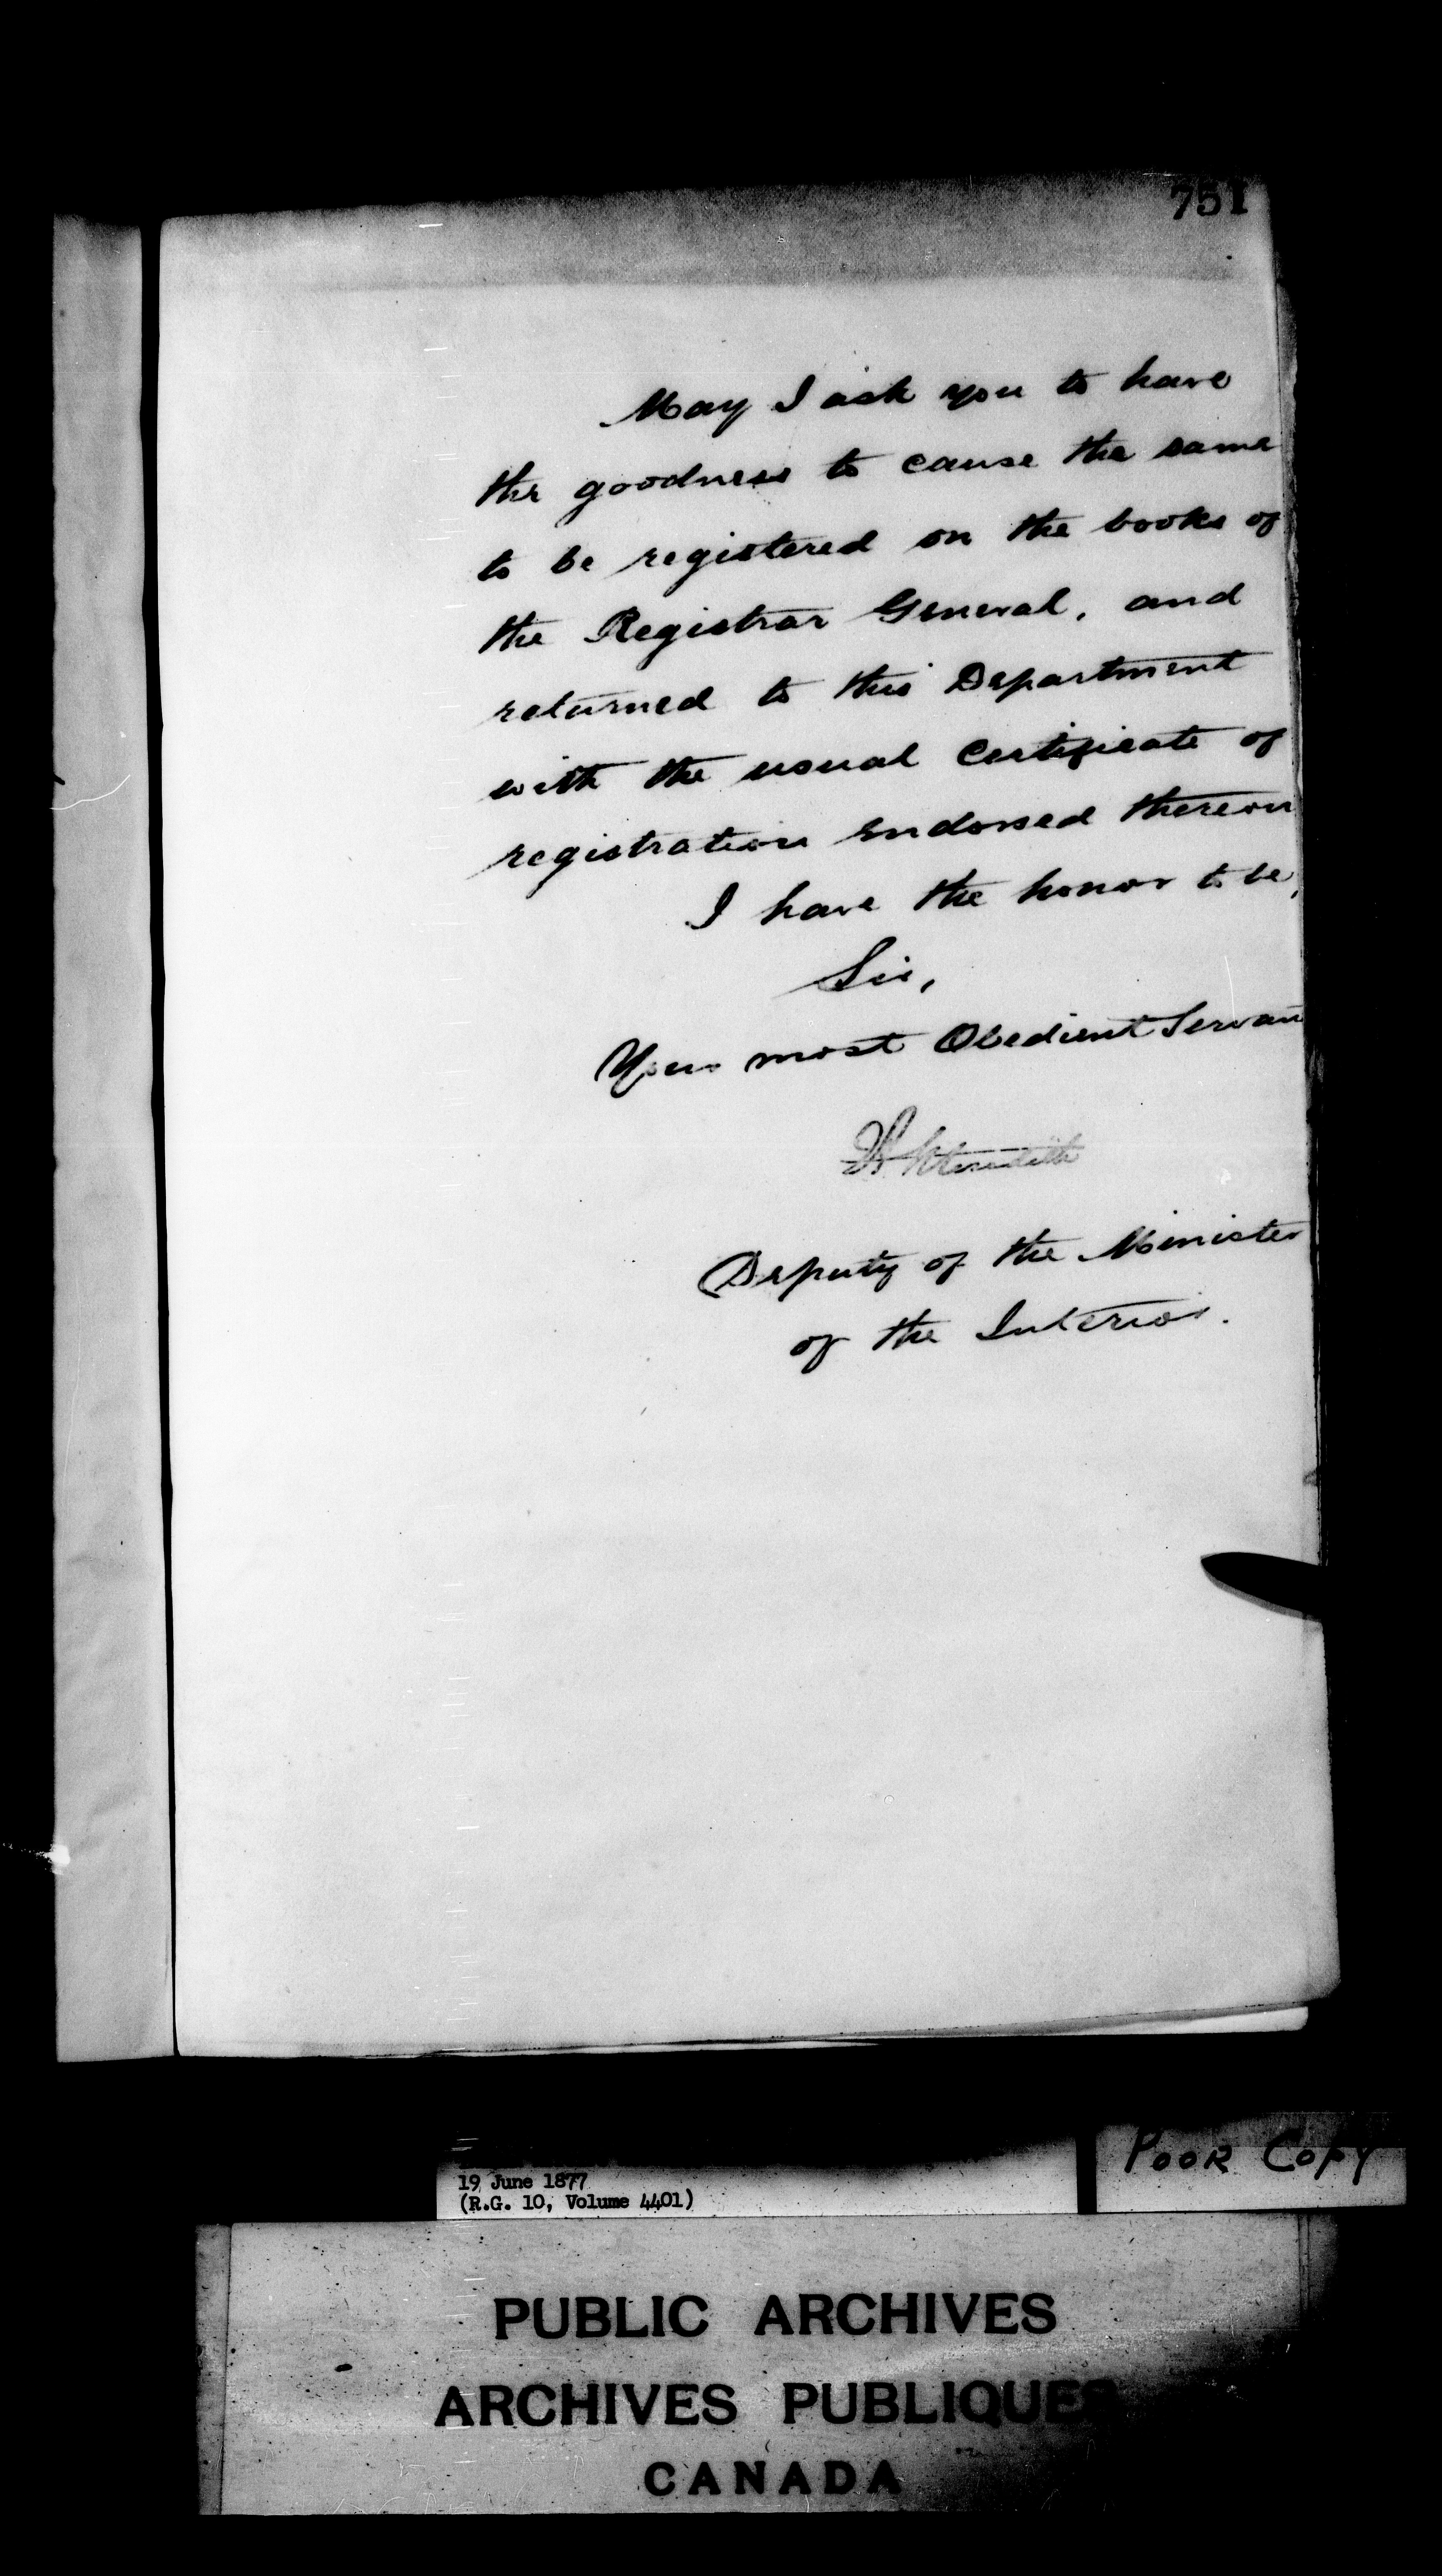 751
May I ask you to have
the goodness to cause the same
to be registered on the books of
the Registrar General, and
returned to this Department
with the usual Certificate of
registration endorsed thereon
I have the honor to be,
Sir,
Your most Obedient Servan
Meredith
Deputy of the Minister
of the Interior.
POOR COPY
19 June 1877
(R.G. 10, Volume 4401)
PUBLIC ARCHIVES
ARCHIVES PUBLIQUES
CANADA